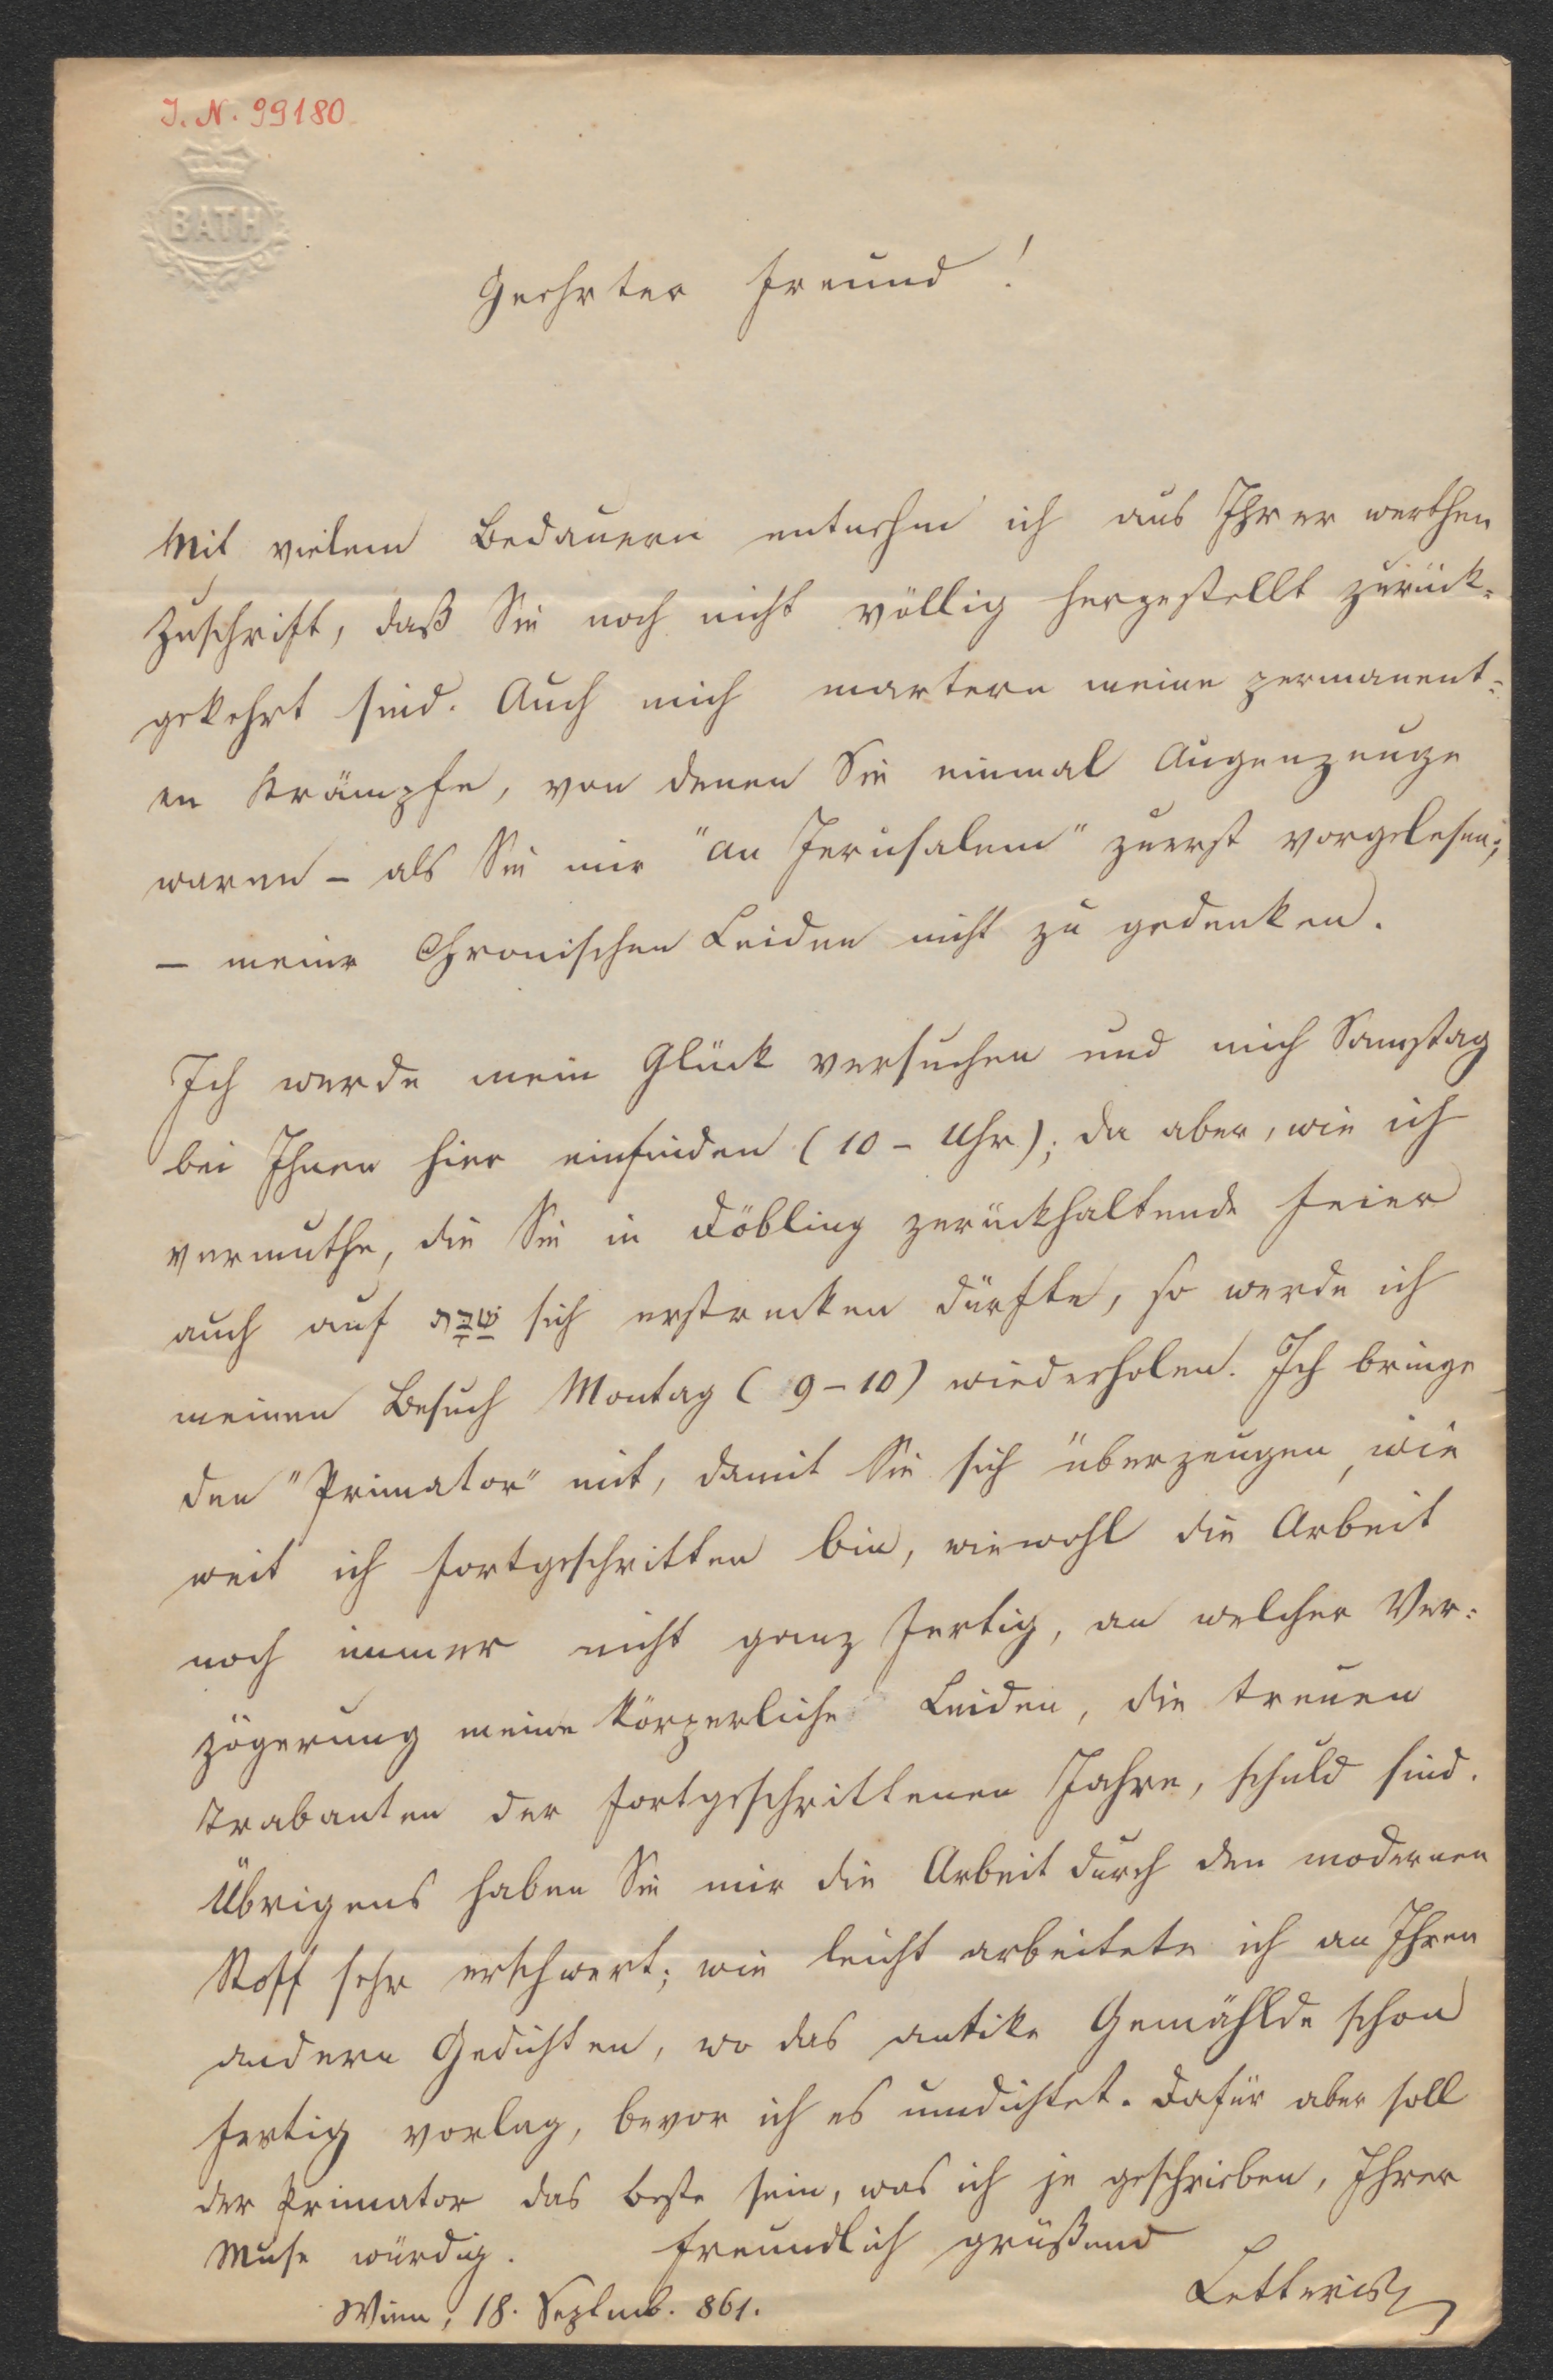 J. N. 99180
BATH
Geehrter Freund!
Mit vielem Bedauern entnehme ich aus Ihrer werthen
Zuschrift, daß Sie noch nicht völlig hergestellt zurück-
gekehrt sind. Auch mich martern meine permanent-
en Krämpfe, von denen Sie einmal Augenzeuge
waren – als Sie mir "An Jerusalem" zuerst vorgelesen;
– meine Chronischen Leiden nicht zu gedenken.
Ich werde mein Glück versuchen und mich Samstag
bei Ihnen hier einfinden (10 – Uhr); da aber, wie ich
vermuthe, die Sie in Döbling zurückhaltende Feier
auch auf שַׁבָּת sich erstrecken dürfte, so werde ich
meinen Besuch Montag (9–10) wiederholen. Ich bringe
den "Primator" mit, damit Sie sich überzeugen, wie
weit ich fortgeschritten bin, wiewohl die Arbeit
noch immer nicht ganz fertig, an welcher Ver-
zögerung meine körperliche Leiden, die treuen
Trabanten der fortgeschrittenen Jahre, schuld sind.
Übrigens haben Sie mir die Arbeit durch den modernen
Stoff sehr erschwert; wie leicht arbeitete ich an Ihren
andern Gedichten, wo das antike Gemählde schon
fertig vorlag, bevor ich es umdichtet. Dafür aber soll
der Primator das beste sein, was ich je geschrieben, Ihrer
Muse würdig. Freundlich grüßend
Letteris
Wien, 18. Septemb. 861.